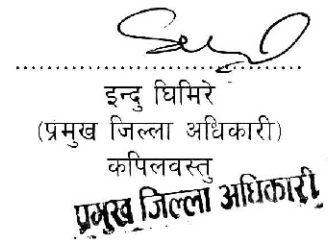 इन्दु घिमिरे
(प्रमुख जिल्ला अधिकारी)
कपिलवस्तु
प्रमुख जिल्ला अधिकारी